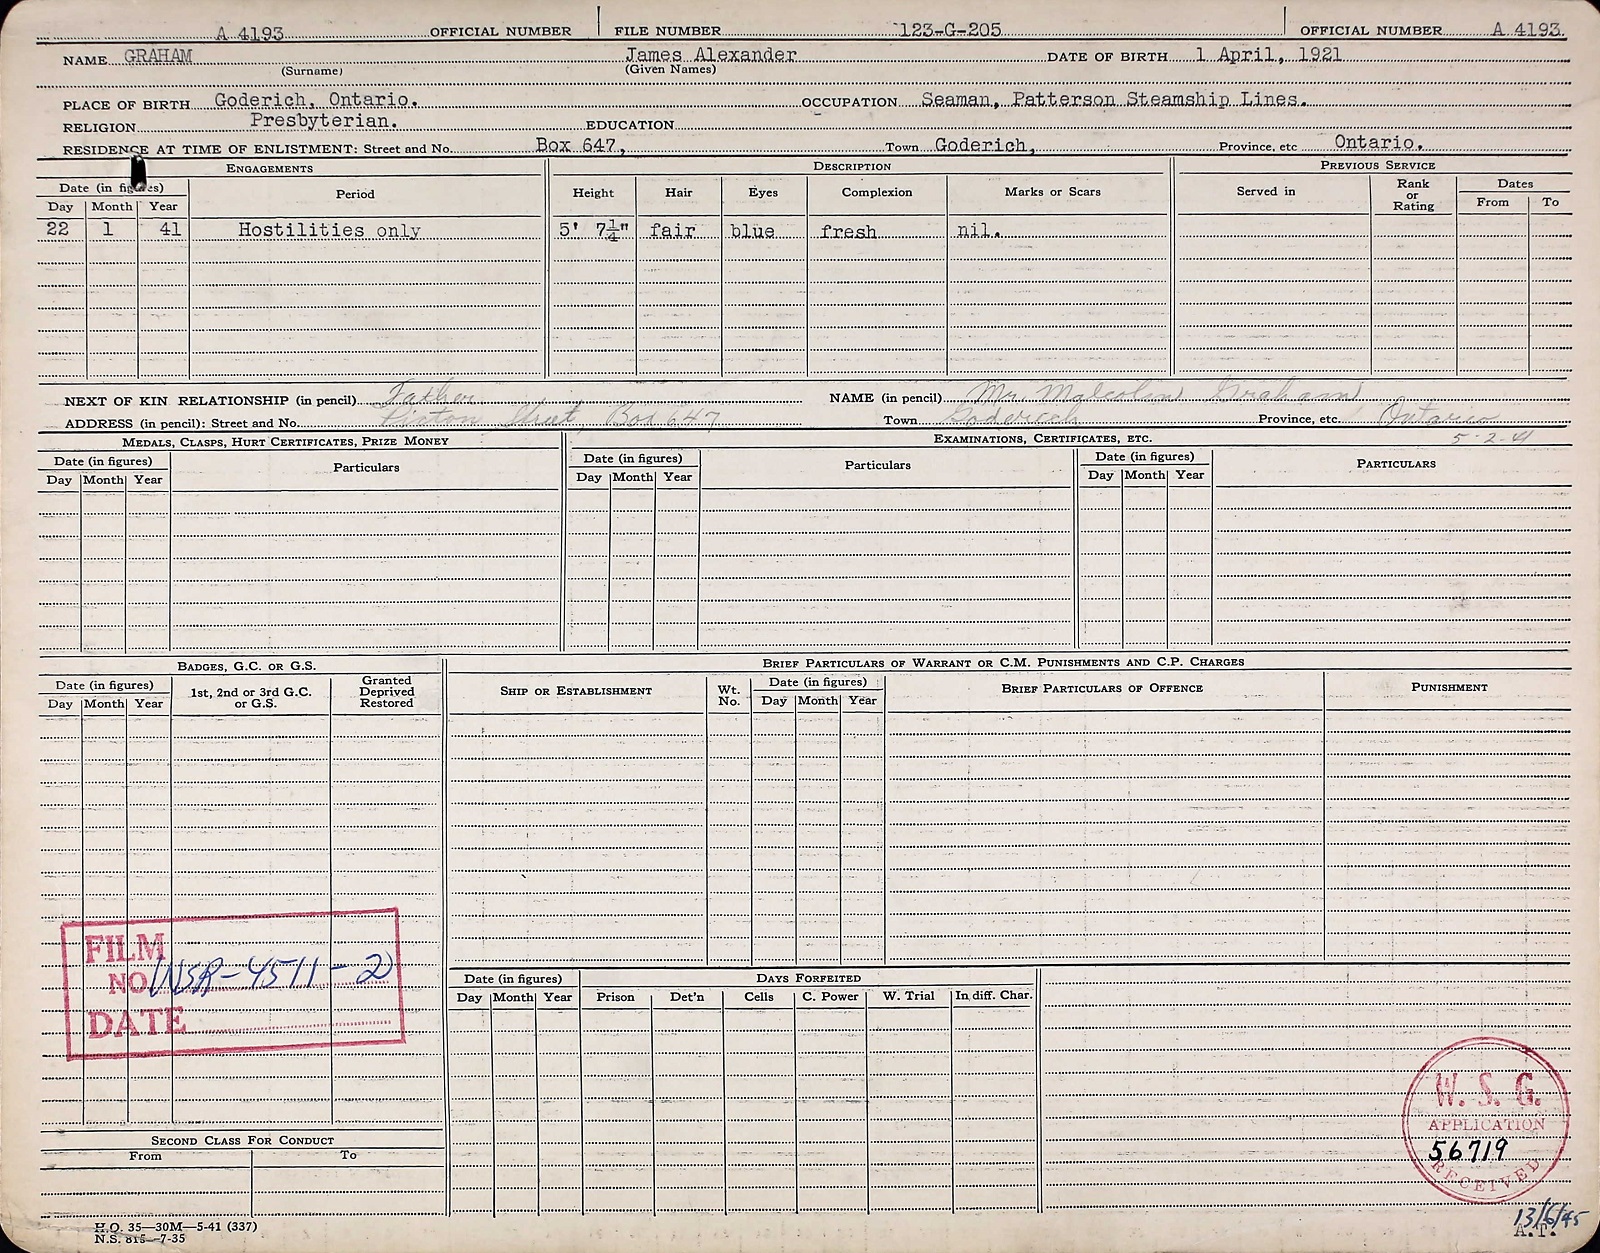 A 4193 OFFICIAL NUMBER FILE NUMBER 123-G-205 OFFICIAL NUMBER A 4193
NAME GRAHAM James Alexander DATE OF BIRTH 1 April, 1921
(Surname) (Given Names)
PLACE OF BIRTH Goderich, Ontario. OCCUPATION Seaman, Patterson Steamship Lines.
RELIGION Presbyterian. EDUCATION
RESIDENCE AT TIME OF ENLISTMENT: Street and No. Box 647, Town Goderich, Province, etc Ontario.
ENGAGEMENTS DESCRIPTION PREVIOUS SERVICE
Date (in figures) Period Height Hair Eyes Complexion Marks or Scars Served in Rank or Rating Dates
Day Month Year From To
22 1 41 Hostilities only 5' 7¼" fair blue fresh nil.
NEXT OF KIN RELATIONSHIP (in pencil) Father NAME (in pencil) Mr. Malcolm Graham
ADDRESS (in pencil): Street and No. Street, Box 647 Town Goderich Province, etc. Ontario
MEDALS, CLASPS, HURT CERTIFICATES, PRIZE MONEY EXAMINATIONS, CERTIFICATES, ETC. 5-2-41
Date (in figures) Particulars Date (in figures) Particulars Date (in figures) PARTICULARS
Day Month Year Day Month Year Day Month Year
BADGES, G.C. OR G.S. BRIEF PARTICULARS OF WARRANT OR C.M. PUNISHMENTS AND C.P. CHARGES
Date (in figures) 1st, 2nd or 3rd G.C. or G.S. Granted Deprived Restored SHIP OR ESTABLISHMENT Wt. No. Date (in figures) BRIEF PARTICULARS OF OFFENCE PUNISHMENT
Day Month Year Day Month Year
FILM
NO WSR-4511-2
DATE
Date (in figures) DAYS FORFEITED
Day Month Year Prison Det'n Cells C. Power W. Trial In diff. Char.
W. S. G.
APPLICATION
56719
RECEIVED
SECOND CLASS FOR CONDUCT
From To
13/6/45
A.T.
H.Q. 35—30M—5-41 (337)
N.S. 815—7-35